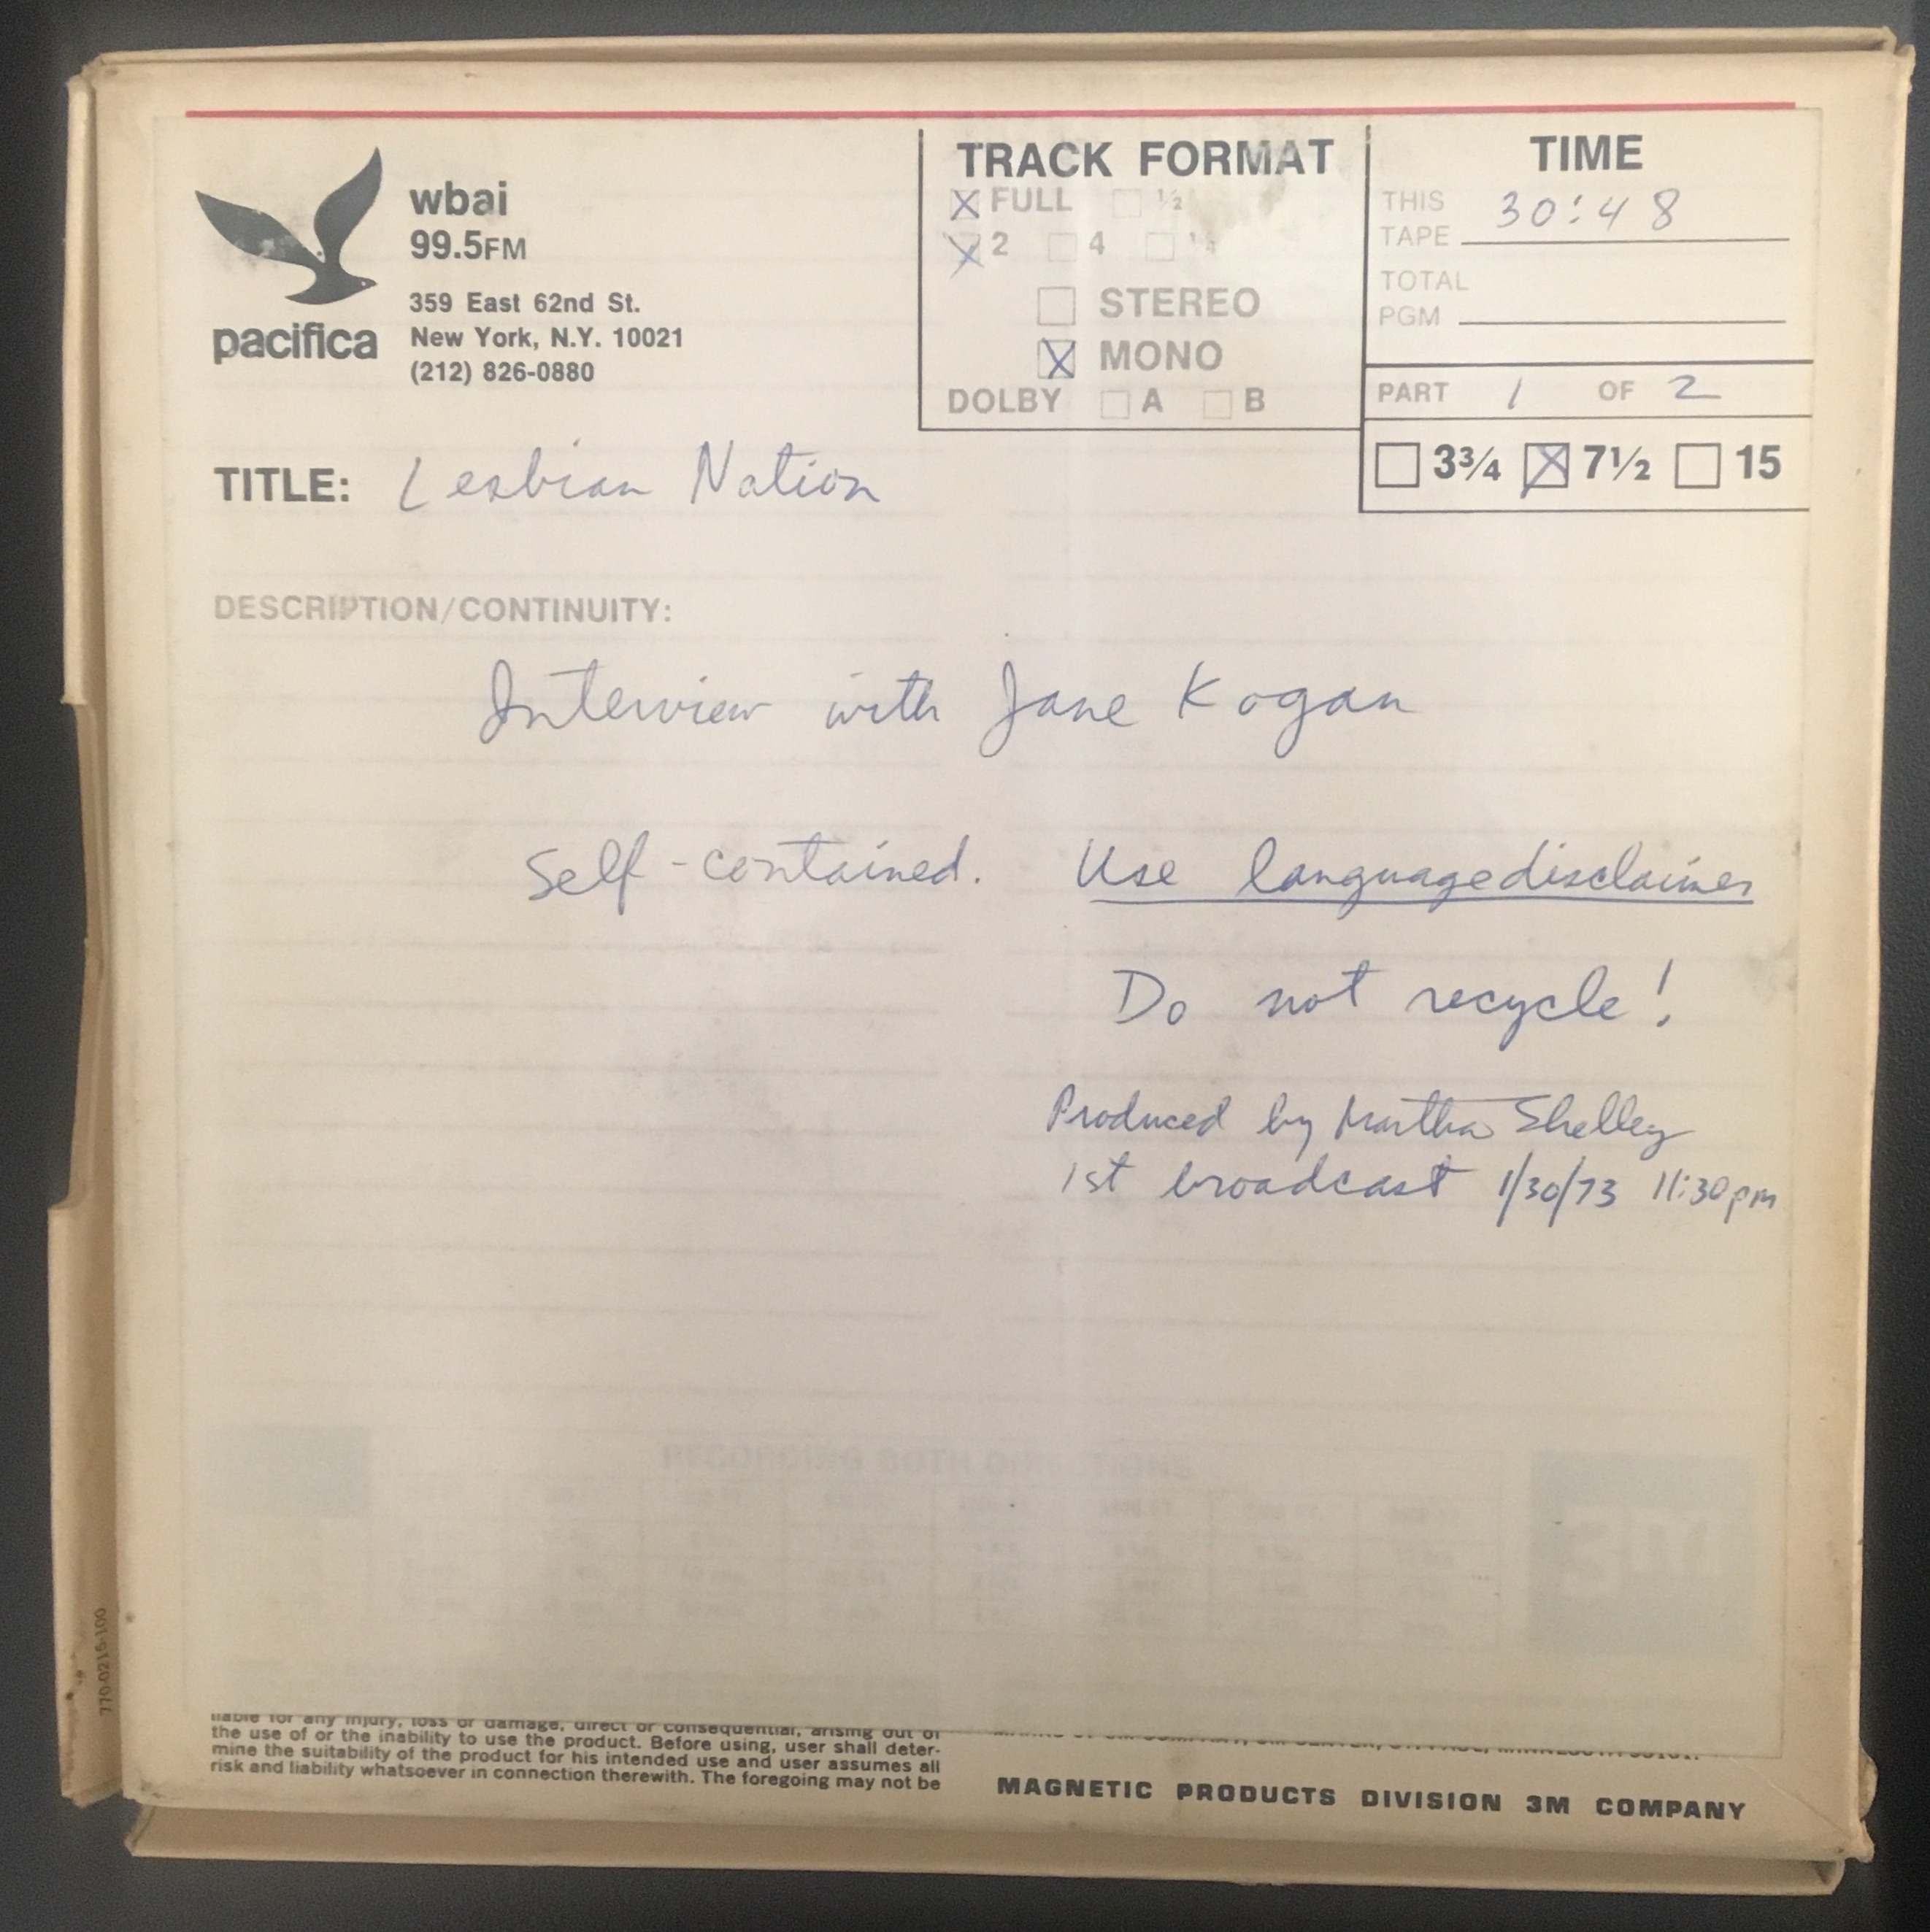 wbai
99.5FM
359 East 62nd St.
New York, N.Y. 10021
(212) 826-0880
pacifica
TRACK FORMAT
FULL ½
2 4 ¼
STEREO
MONO
DOLBY A B
TIME
THIS TAPE 30:48
TOTAL PGM
PART 1 OF 2
3¾ 7½ 15
TITLE: Lesbian Nation
DESCRIPTION/CONTINUITY:
Interview with Jane Kogan
Self-contained. Use language disclaimer
Do not recycle!
Produced by Martha Shelley
1st broadcast 1/30/73 11:30pm
RECORDING BOTH DIRECTIONS
3M
770-0215-100
liable for any injury, loss or damage, direct or consequential, arising out of
the use of or the inability to use the product. Before using, user shall deter-
mine the suitability of the product for his intended use and user assumes all
risk and liability whatsoever in connection therewith. The foregoing may not be
MAGNETIC PRODUCTS DIVISION 3M COMPANY